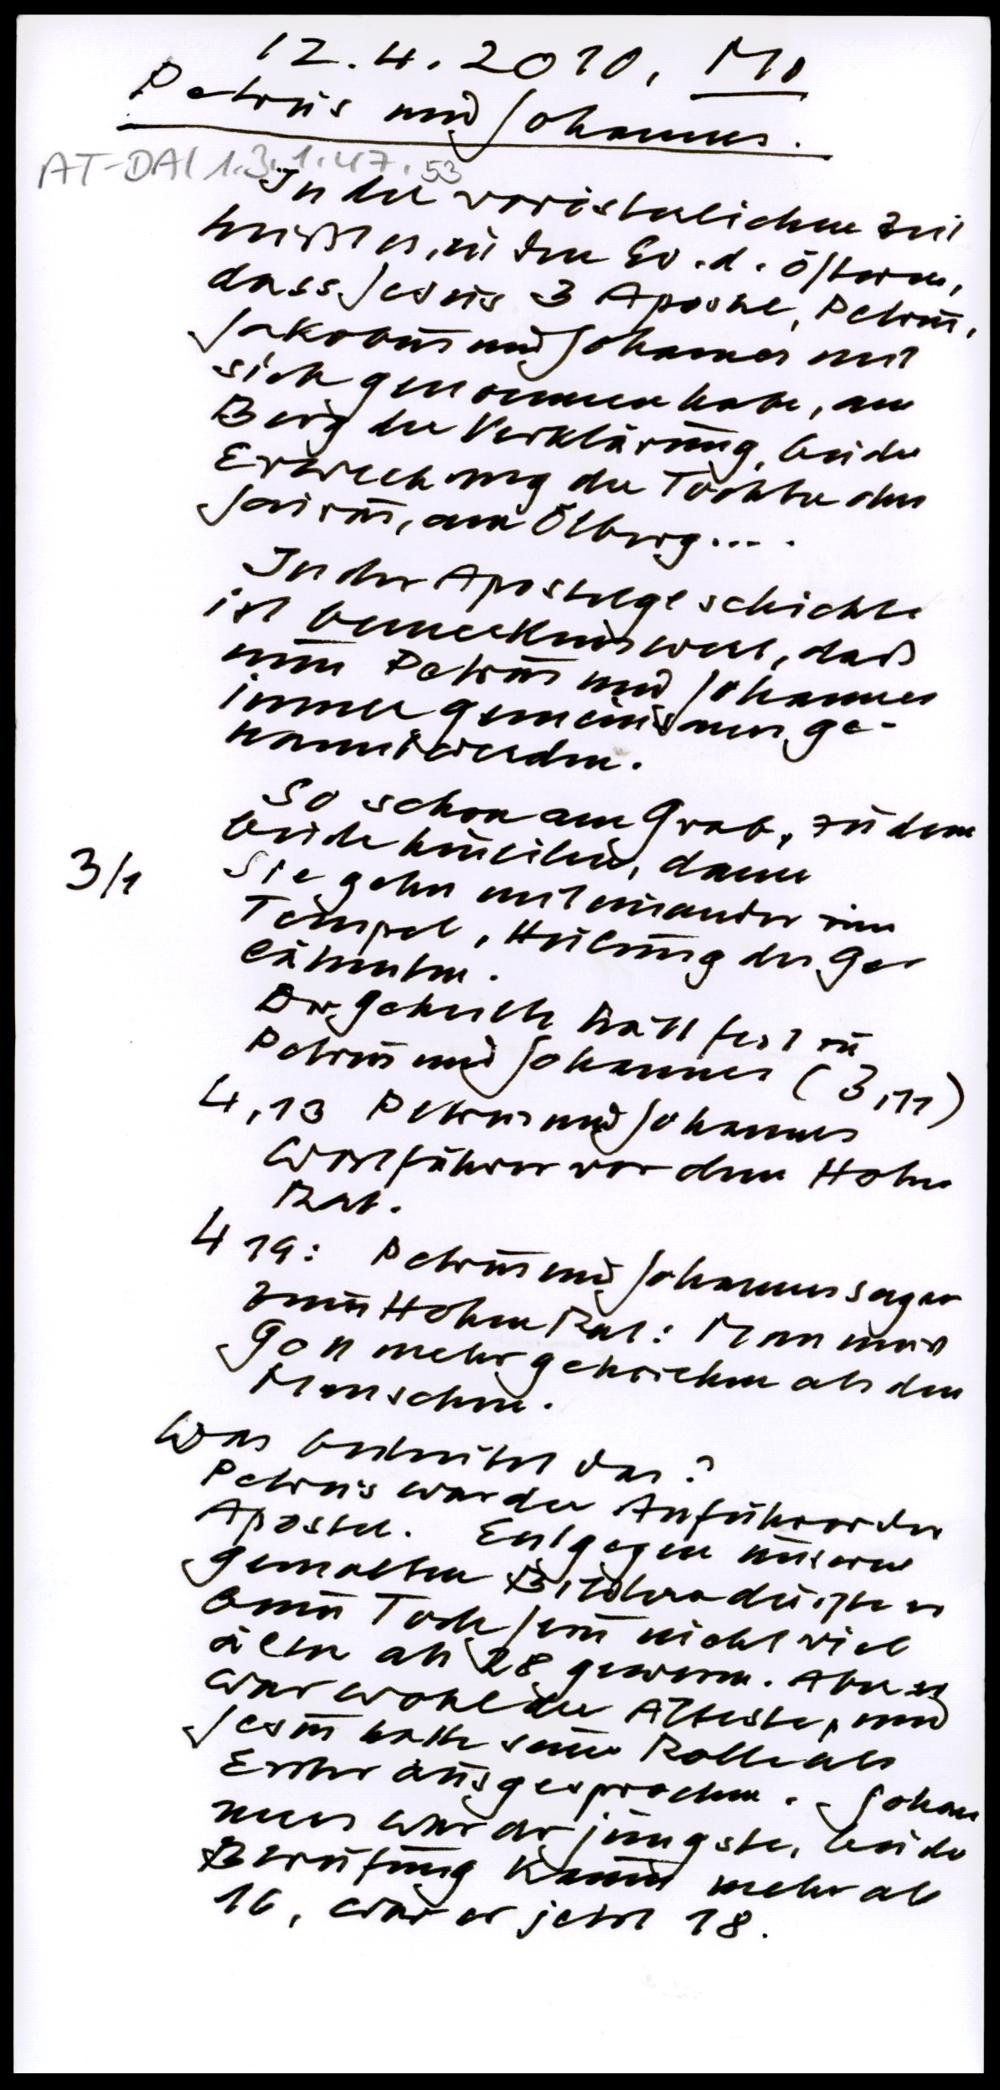 12.4.2010, Mo
Petrus und Johannes.
AT-DAI 1.3.1.47.53
In der vorösterlichen Zeit
heißt es, in den Ev. d. öfteren,
dass Jesus 3 Apostel, Petrus,
Jakobus und Johannes mit
sich genommen habe, am
Berg der Verklärung, bei der
Erweckung der Tochter des
Jairus, am Ölberg....
In der Apostelgeschichte
ist bemerkenswert, daß
nun Petrus und Johannes
immer gemeinsam ge-
nannt werden.
So schon am Grab, zu dem
beide hineilen, dann
3/1
Sie gehn miteinander im
Tempel, Heilung des Ge
lähmten.
Der Geheilte hält fest zu
Petrus und Johannes (3,11)
4,13 Petrus und Johannes
Wortführer vor dem Hohen
Rat.
4 19: Petrus und Johannes sagen
zum Hohen Rat: Man muß
Gott mehr gehorchen als den
Menschen.
Was bedeutet das?
Petrus war der Anführer der
Apostel. Entgegen unseren
gemalten Bildern dürfte er
beim Tode Jesu nicht viel
älter als 28 gewesen. Aber er
war wohl der Älteste, und
Jesus hatte seine Rolle als
Erster ausgesprochen. Johan
nes war der jüngste, bei der
Berufung kaum mehr als
16, war er jetzt 18.